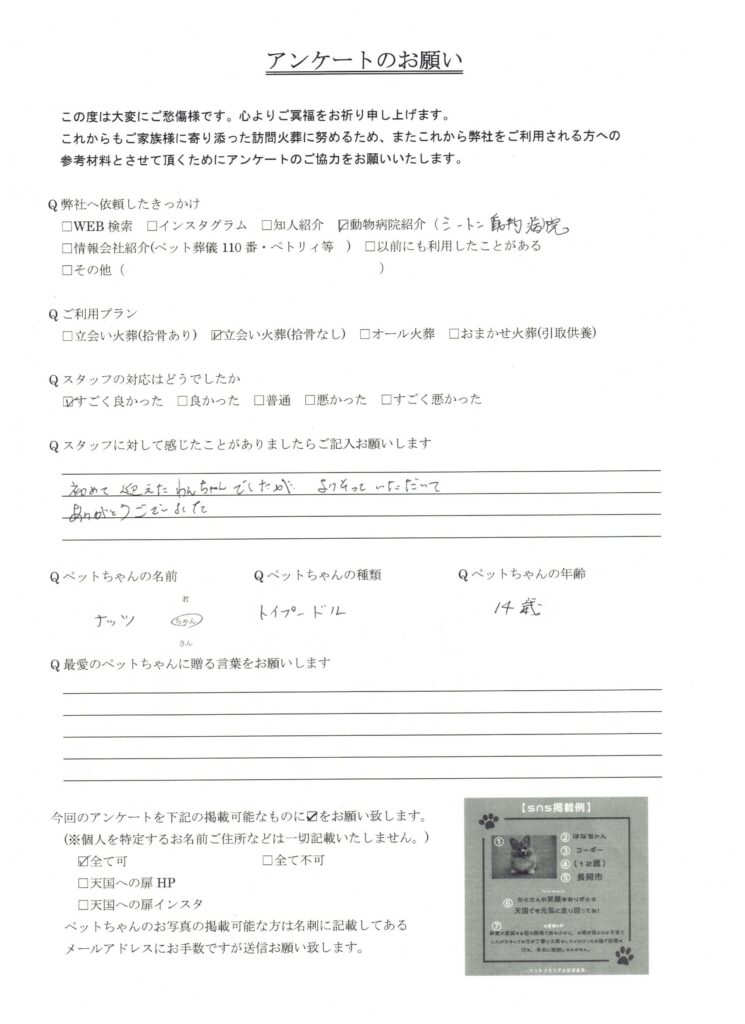 アンケートのお願い
この度は大変にご愁傷様です。心よりご冥福をお祈り申し上げます。
これからもご家族様に寄り添った訪問火葬に努めるため、またこれから弊社をご利用される方への
参考材料とさせて頂くためにアンケートのご協力をお願いいたします。
Q 弊社へ依頼したきっかけ
□WEB 検索 □インスタグラム □知人紹介 ☑動物病院紹介（シートン動物病院
□情報会社紹介(ペット葬儀 110 番・ペトリィ等 ） □以前にも利用したことがある
□その他（ ）
Q ご利用プラン
□立会い火葬(拾骨あり) ☑立会い火葬(拾骨なし) □オール火葬 □おまかせ火葬(引取供養)
Q スタッフの対応はどうでしたか
☑すごく良かった □良かった □普通 □悪かった □すごく悪かった
Q スタッフに対して感じたことがありましたらご記入お願いします
初めて迎えたわんちゃんでしたが よりそっていただいて
ありがとうございました
Q ペットちゃんの名前 Q ペットちゃんの種類 Q ペットちゃんの年齢
君
ナッツ ちゃん トイプードル 14歳
さん
Q 最愛のペットちゃんに贈る言葉をお願いします
今回のアンケートを下記の掲載可能なものに☑をお願い致します。
(※個人を特定するお名前ご住所などは一切記載いたしません。)
☑全て可 □全て不可
□天国への扉 HP
□天国への扉インスタ
ペットちゃんのお写真の掲載可能な方は名刺に記載してある
メールアドレスにお手数ですが送信お願い致します。
【sns掲載例】
① ② はなちゃん
③ コーギー
④ （12歳）
⑤ 長岡市
⑥ たくさんの笑顔をありがとう
天国でも元気に走り回ってね！
⑦